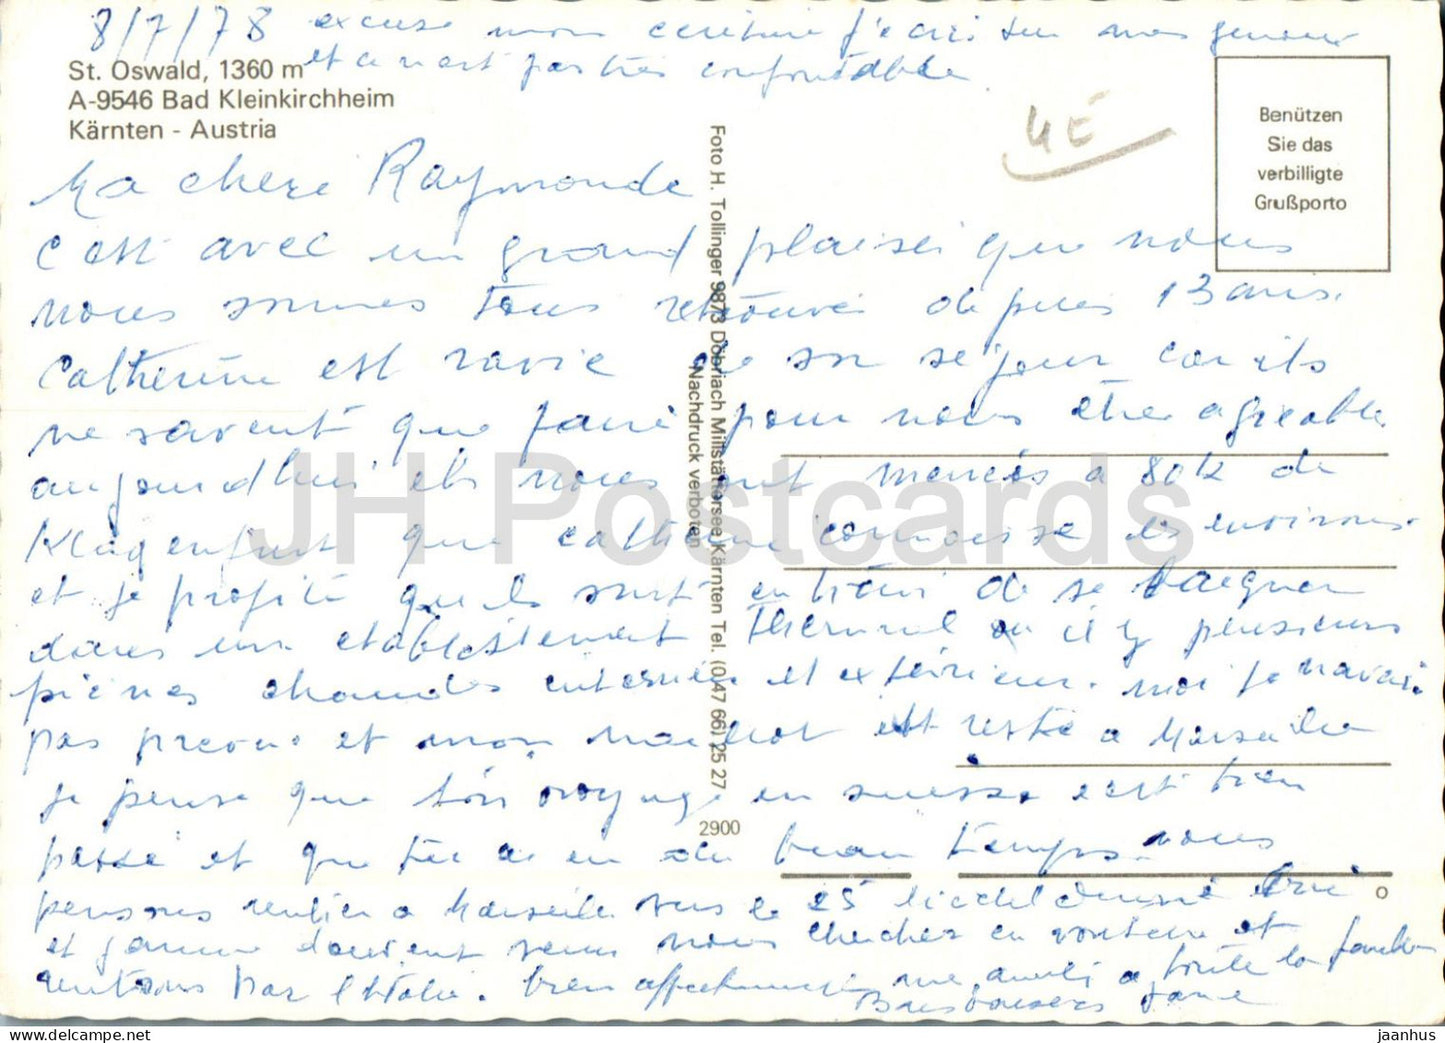 8/7/78 excuse mon ecriture j'ecris sur mes genoux
et ce n'est pas très confortable
St. Oswald, 1360 m
A-9546 Bad Kleinkirchheim
Kärnten - Austria
4E
Benützen
Sie das
verbilligte
Grußporto
Ma chere Raymonde
c'est avec un grand plaisir que nous
nous sommes tous retrouvés depuis 13 ans.
Catherine est ravie de son sejour car ils
ne savent que faire pour nous être agreable
aujourd'hui ils nous ont menés a 80 k de
Klagenfurt que catherine connaisse les environs
et je profite qu'ils sont entrain de se baigner
dans un etablissement Thermal ou il y plusieurs
picines chaudes interieur et exterieur. moi je n'avais
pas prevu et mon maillot est resté a Marseille
je pense que ton voyage en suisse c'est bien
passé et que tu as eu du beau temps. nous
pensons rentrer a Marseille vers le 25
et doivent venir nous chercher en voiture et
rentrons par l'Italie. bien affectueusement a toute la famille
Jane
Foto H. Tollinger 9873 Döbriach Millstättersee Kärnten Tel. (0 47 66) 25 27
Nachdruck verboten
2900
JH Postcards
hippostcard.com/store/jaanhus